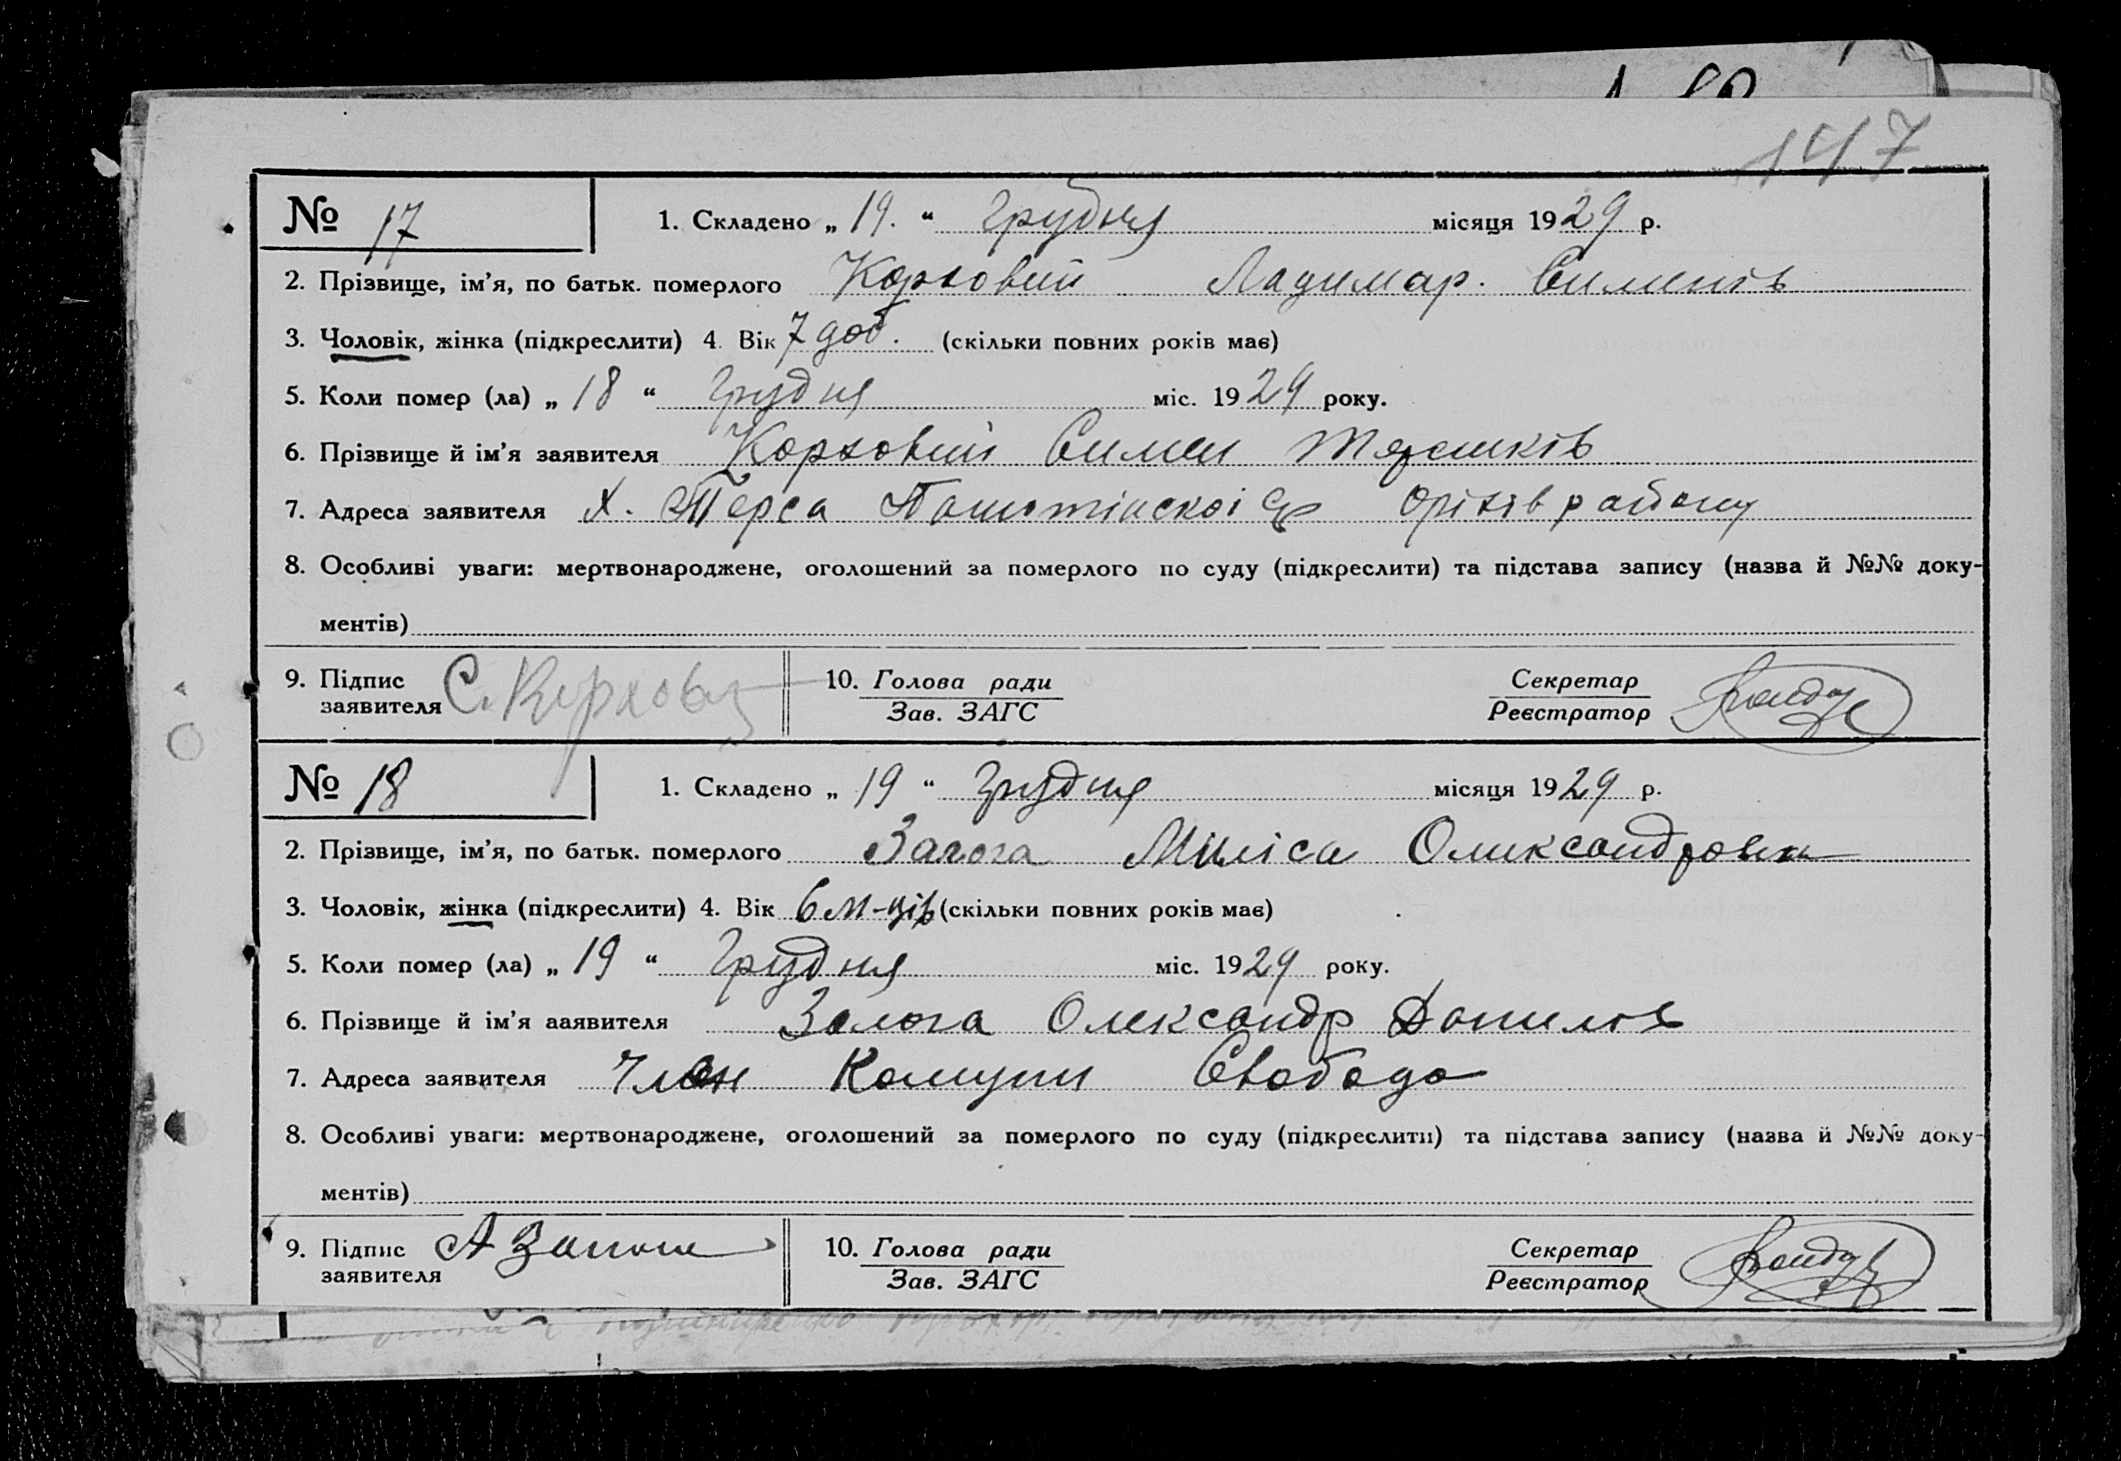 147
№ 17 1. Складено „ 19. “ Грудня місяця 1929 р.
2. Прізвище, ім’я, по батьк. померлого Коржовий Ладимар. Сименів
3. Чоловік, жінка (підкреслити) 4. Вік 7 доб. (скільки повних років має)
5. Коли помер (ла) „ 18 “ Грудня міс. 1929 року.
6. Прізвище й ім’я заявителя Коржовий Симен
7. Адреса заявителя х. Терса району
8. Особливі уваги: мертвонароджене, оголошений за померлого по суду (підкреслити) та підстава запису (назва й №№ доку-
ментів)
9. Підпис 10. Голова ради Секретар
заявителя С. Зав. ЗАГС Реєстратор
№ 18 1. Складено „ 19 “ грудня місяця 1929 р.
2. Прізвище, ім’я, по батьк. померлого Залога Миліса Олександровна
3. Чоловік, жінка (підкреслити) 4. Вік 6 м-ців (скільки повних років має)
5. Коли помер (ла) „ 19 “ Грудня міс. 1929 року.
6. Прізвище й ім’я ааявителя Залога Олександр Данилов
7. Адреса заявителя Член Комуни Свобода
8. Особливі уваги: мертвонароджене, оголошений за померлого по суду (підкреслити) та підстава запису (назва й №№ доку-
ментів)
9. Підпис А Залога 10. Голова ради Секретар
заявителя Зав. ЗАГС Реєстратор